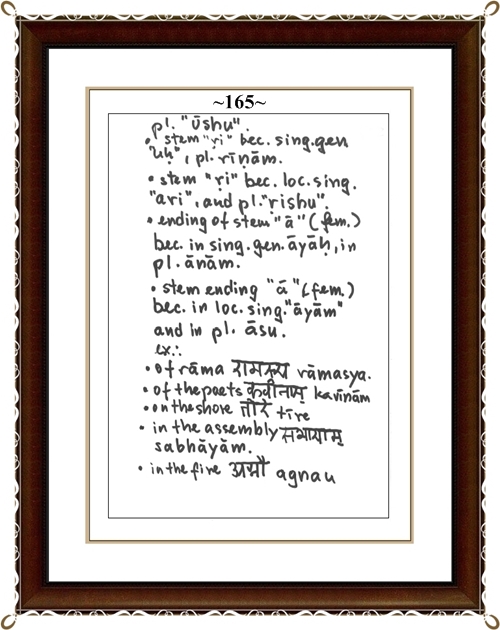 ~165~
pl. "ūshu".
• stem "ṛi" bec. sing.gen
"uḥ", pl. rīṇām.
• stem "ṛi" bec. loc. sing.
"ari", and pl."rishu".
• ending of stem "ā" (fem.)
bec. in sing. gen. āyāḥ, in
pl. ānām.
• stem ending "ā" (fem.)
bec. in loc. sing."āyām"
and in pl. āsu.
ex.:
• of rāma रामस्य rāmasya.
• of the poets कवीनाम् kavīnām
• on the shore तीरे tīre
• in the assembly सभायाम्
sabhāyām.
• in the fire अग्नौ agnau